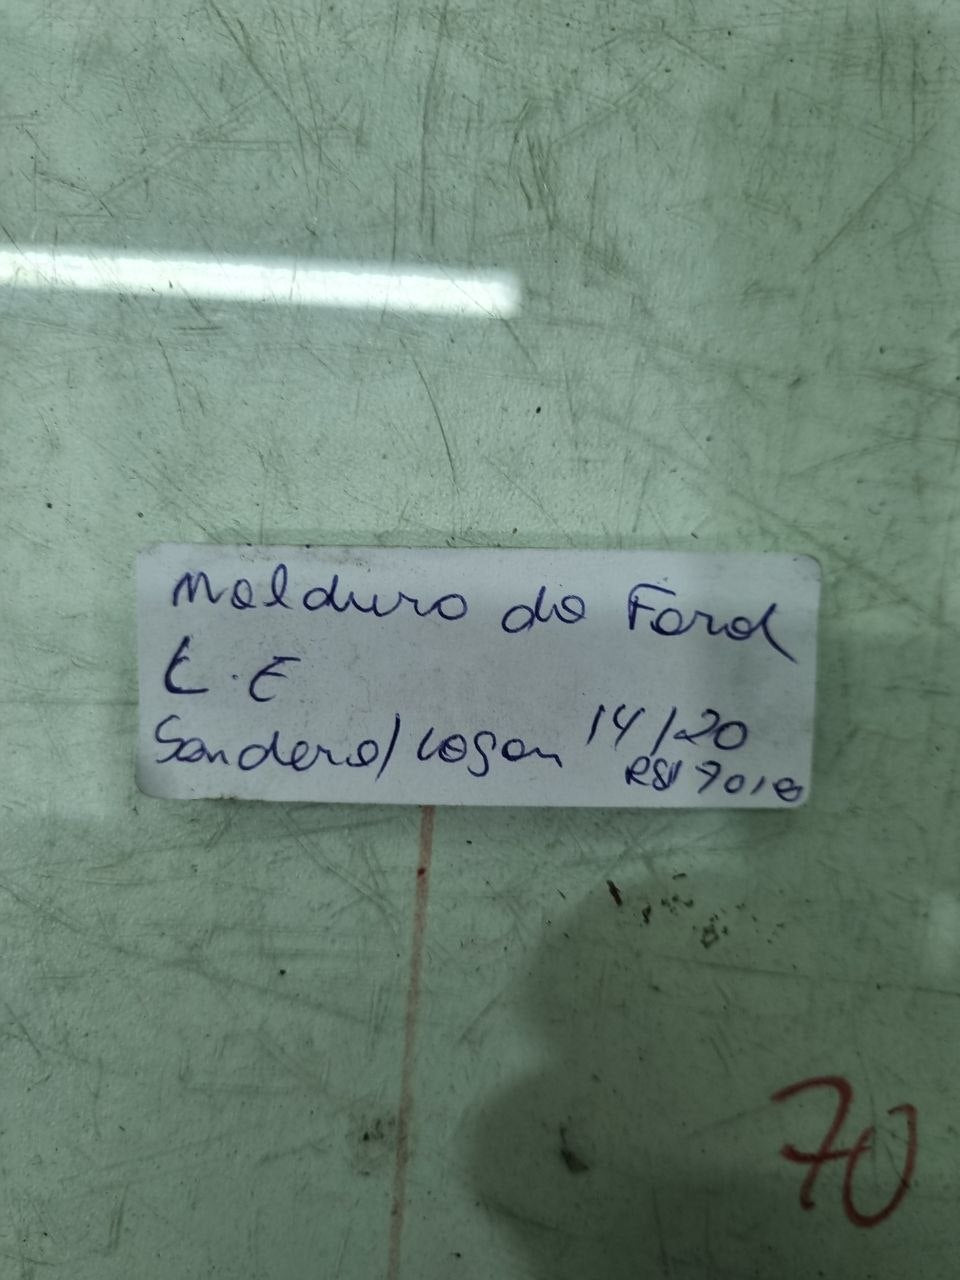 Moldura do Farol
L.E
Sandero/Logan 14/20
RSI 7018
70